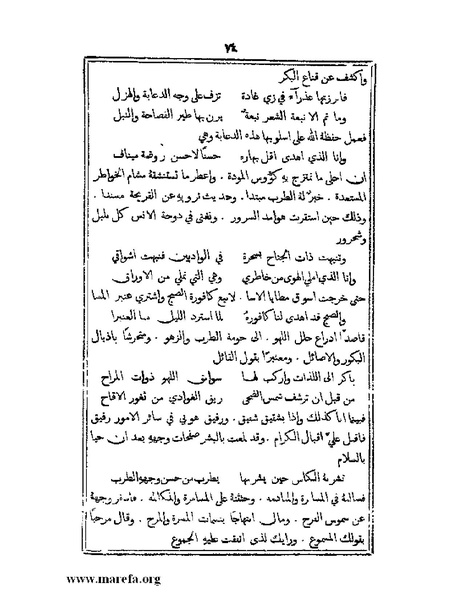 ٧٤
واكشف عن قناع البكر
فابرزيها عذرآء في زي غادة تزف على وجه الدعابة والهزل
وما ثم الا نبعة الشعر نبعة يرن بها طير الفصاحة والنبل
فصل حفظة الله على اسلوبها هذه الدعابة وهي
وانا الذي اهدى اقل بهاره حسنًا لاحسن روضة ميناف
ان احلى ما تمتزج به كؤوس المودة . واعطر ما تستنشقه مشام الخواطر
المستعدة . خبر له الطرب مبتدا . وحديث ترويه عن القريحة مسندا .
وذلك حين استقرت هوامد السرور . وتغنى في دوحة الانس كل بلبل
وشحرور
وتنبهت ذات الجناح بسحرة في الواديين فنبهت اشواقي
وانا الذي املي الهوى من خاطري وهي التي تملي من الاوراق
حتى خرجت اسوق مطايا الاسا . لابيع كافورة الصبح واشتري عنبر المسا
والصبح قد اهدى لنا كافوره لما استرد الليل منا العنبرا
قاصدًا ادراع حلل اللهو . الى حومة الطرب والزهو . ومتحرشًا باذيال
البكور والاصائل . ومعتبرًا بقول القائل
باكر الى اللذات واركب لها سوابق اللهو ذوات المراح
من قبل ان ترشف شمس الضحى ريق الغوادي من ثغور الاقاح
فبينما انا كذلك واذا بشقيق شفيق . ورفيق هو بي في سائر الامور رفيق
فاقبل عليّ اقبال الكرام . وقد لمعت بالبشر صفحات وجهه بعد ان حيا
بالسلام
تشربه الكاس حين يشربها يطرب من حسن وجهه الطرب
فسالته في المسارة والمنادمه . وحثثته على المسامرة والمكالمه . فاسفر وجهه
عن شموس الفرح . ومال ابتهاجًا بنسمات المسرة والمرح . وقال مرحبًا
بقولك المسموع . ورايك لذى اتفقت عليه الجموع
www.marefa.org